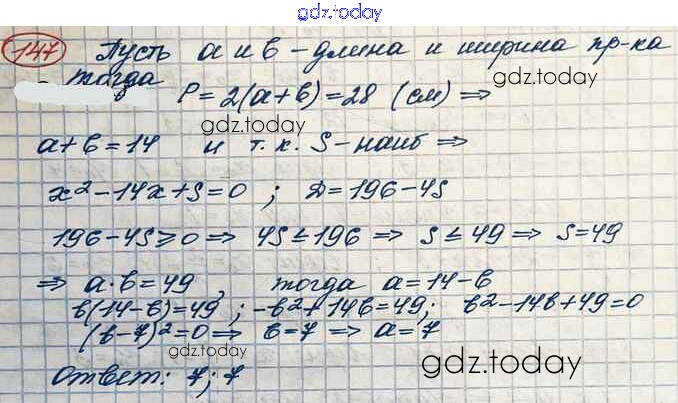 gdz.today
147 Пусть a и b - длина и ширина пр-ка
тогда P = 2(a+b) = 28 (см) ⇒
gdz.today
gdz.today
a+b=14 и т.к. S-наиб ⇒
x²-14x+S=0 ; D=196-4S
196-4S≥0 ⇒ 4S≤196 ⇒ S≤49 ⇒ S=49
⇒ a·b=49, тогда a=14-b
b(14-b)=49 ; -b²+14b=49; b²-14b+49=0
(b-7)²=0 ⇒ b=7 ⇒ a=7
gdz.today
Ответ: 7; 7
gdz.today